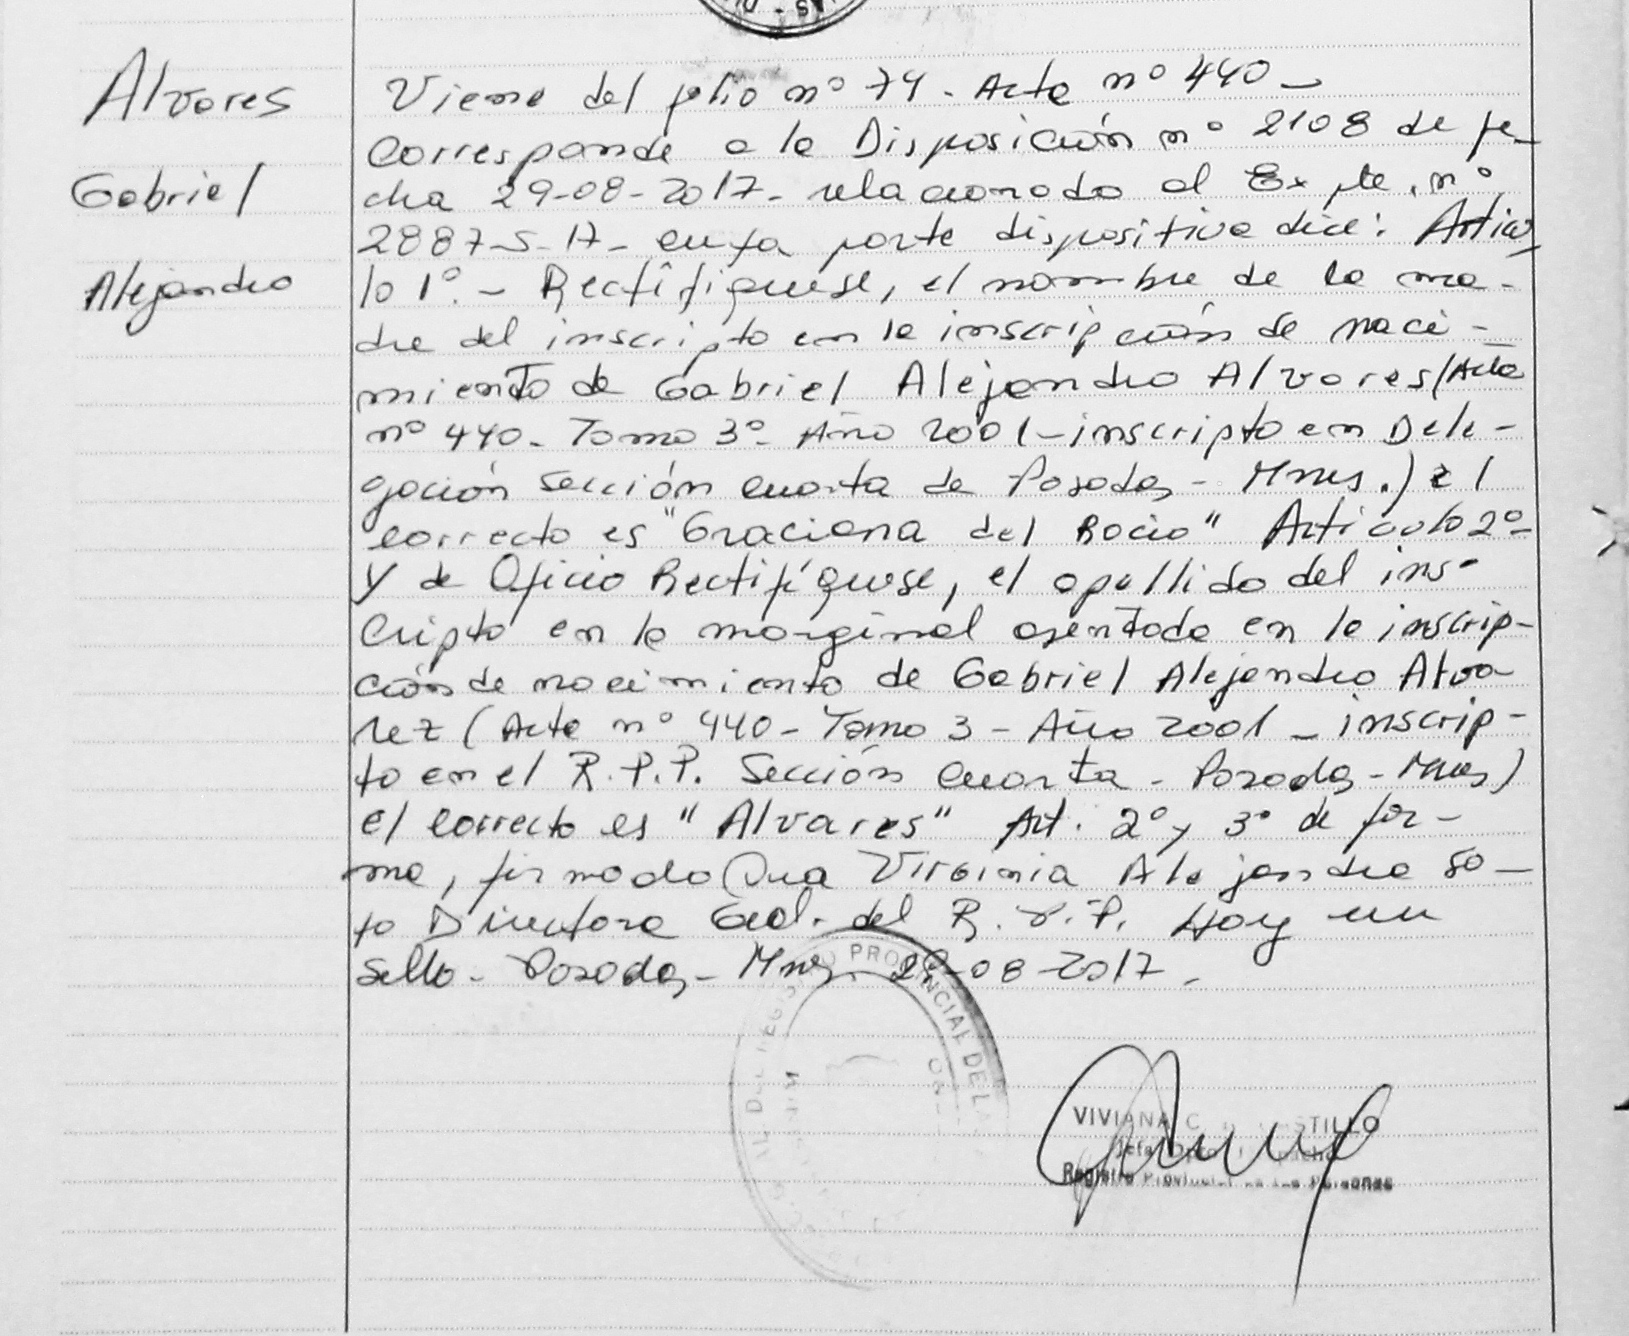 AS - D
Alvares
Gabriel
Alejandro
Viene del folio nº 74 - Acta nº 440 -
Corresponde a la Disposición nº 2108 de fe-
cha 29-08-2017- relacionado al Expte. nº
2887-S-17- cuya parte dispositiva dice: Artícu-
lo 1º.- Rectifíquese, el nombre de la ma-
dre del inscripto en la inscripción de naci-
miento de Gabriel Alejandro Alvares (Acta
nº 440- Tomo 3º- Año 2001- inscripto en Dele-
gación Sección cuarta de Posadas - Mnes.) el
correcto es "Graciana del Rocio" Articulo 2º-
y de Oficio Rectifíquese, el apellido del ins-
cripto en la marginal asentada en la inscrip-
ción de nacimiento de Gabriel Alejandro Alva-
rez (Acta nº 440- Tomo 3 - Año 2001 - inscrip-
to en el R.P.P. Sección Cuarta - Posadas - Mnes)
el correcto es "Alvares" Art. 2º y 3º de for-
ma, firmado Dra Virginia Alejandra So-
to Directora Gral. del R.P.P. Hay un
sello - Posadas - Mnes - 29-08-2017.
PROVINCIAL DE LA
VIVIANA C. STILLO
Jefa Dpto
Registro Provincial de las Personas